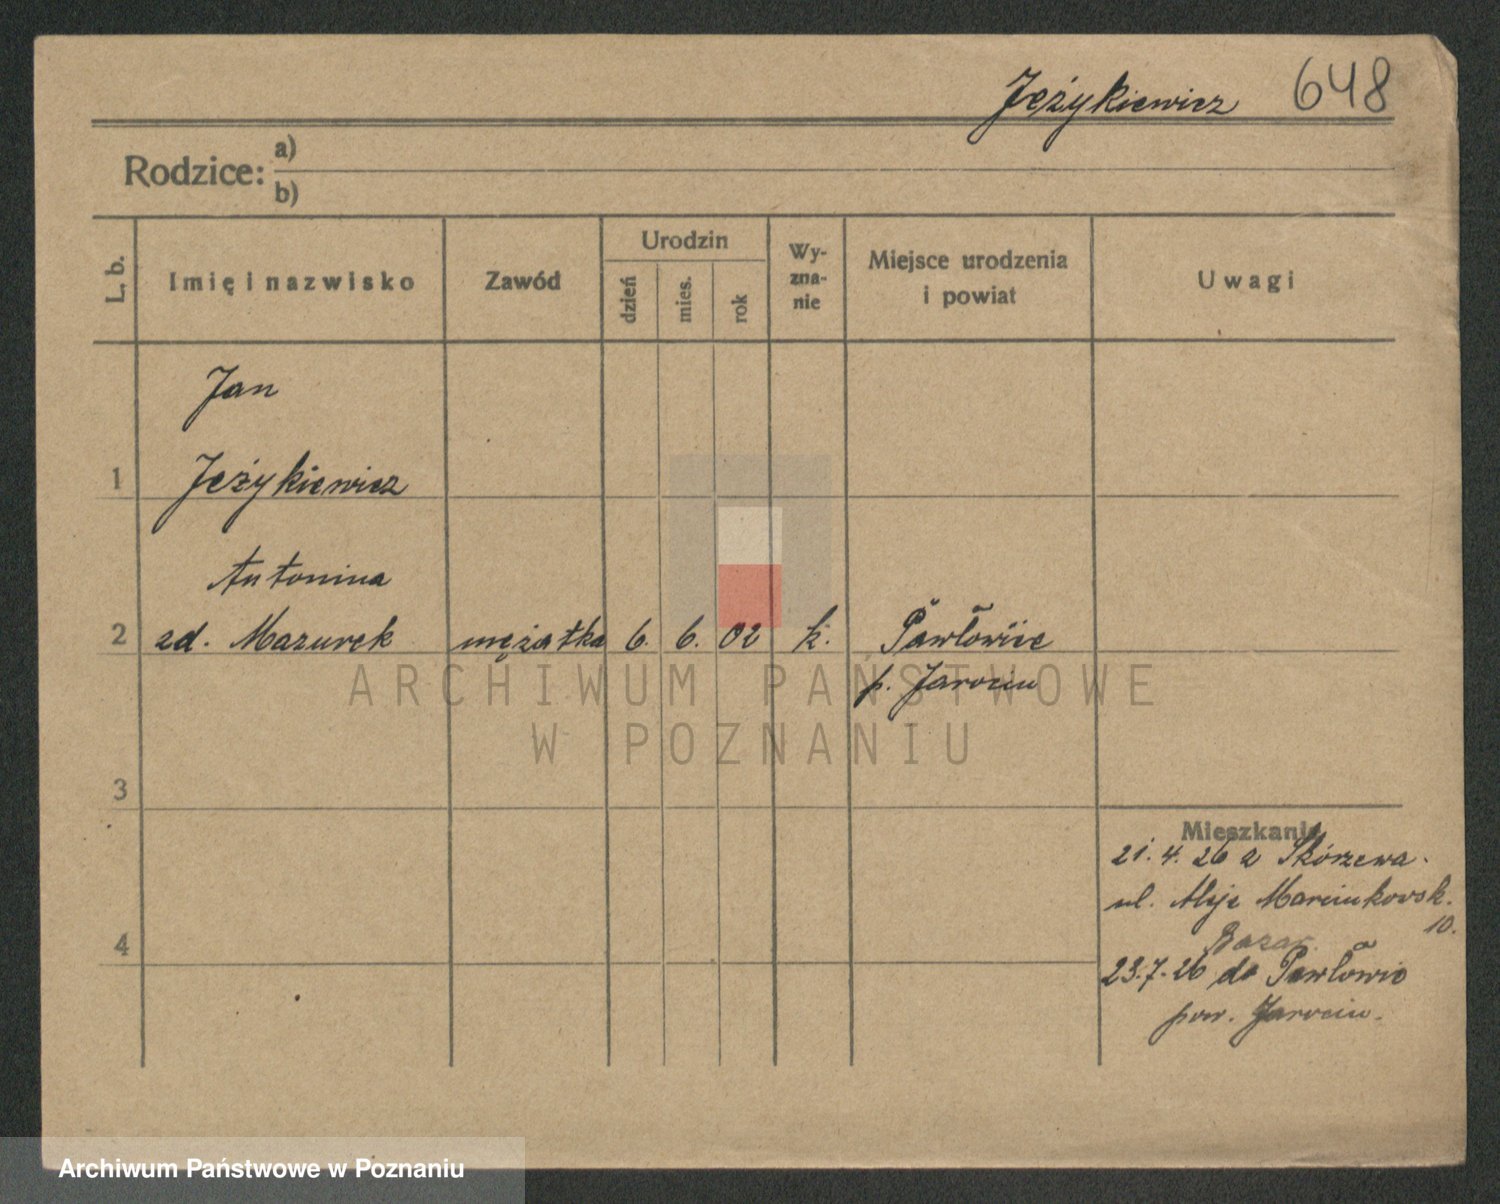 Jeżykiewicz 648
Rodzice: a)
b)
L. b. Imię i nazwisko Zawód Urodzin dzień mies. rok Wy-zna-nie Miejsce urodzenia i powiat Uwagi
Jan
1 Jeżykiewicz
Antonina
2 zd. Mazurek mężatka 6. 6. 02 k. Pawłowice
p. Jarocin
ARCHIWUM PAŃSTWOWE
W POZNANIU
3
Mieszkanie
21. 4. 26 z Skórzewa.
ul. Aleje Marcinkowsk.
10.
Bazar
4
23.7.26 do Pawłowic
pow. Jarocin.
Archiwum Państwowe w Poznaniu